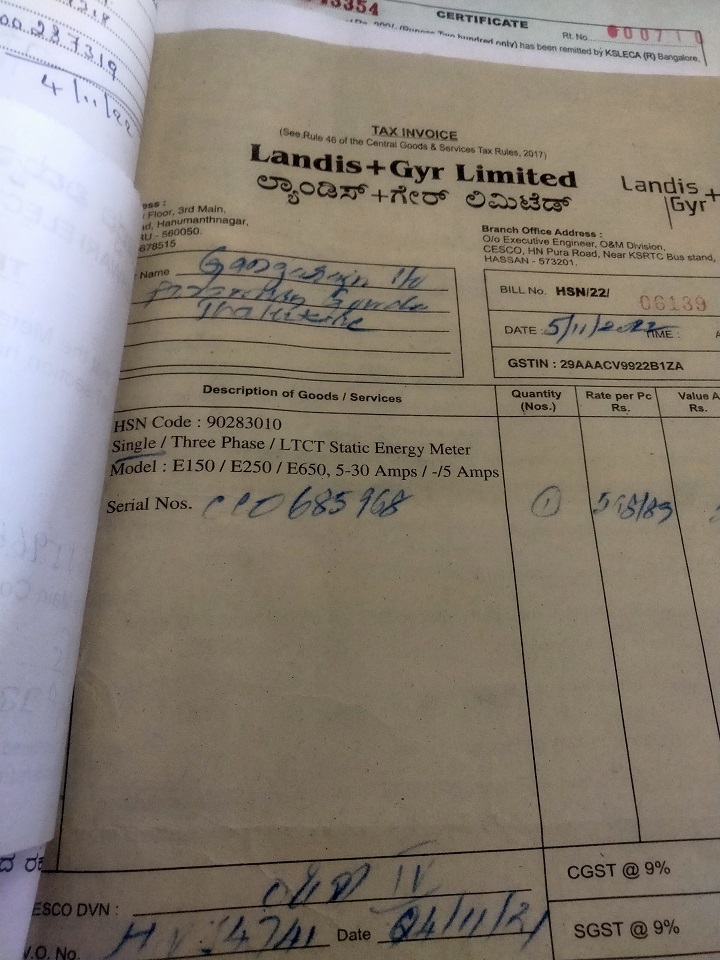 13354
CERTIFICATE
Rt. No. 000710
only) has been remitted by KSLECA (R) Bangalore.
4/11/22
TAX INVOICE
(See Rule 46 of the Central Goods & Services Tax Rules, 2017)
Landis+Gyr Limited
ಲ್ಯಾಂಡಿಸ್+ಗೇರ್ ಲಿಮಿಟೆಡ್
Landis+
Gyr
Floor, 3rd Main,
Hanumanthnagar,
- 560050.
678515
Branch Office Address :
O/o Executive Engineer, O&M Division,
CESCO, HN Pura Road, Near KSRTC Bus stand,
HASSAN - 573201.
Name
BILL No. HSN/22/ 06139
DATE : 5/11/2022 TIME :
GSTIN : 29AAACV9922B1ZA
Description of Goods / Services
Quantity (Nos.)
Rate per Pc Rs.
Value Rs.
HSN Code : 90283010
Single / Three Phase / LTCT Static Energy Meter
Model : E150 / E250 / E650, 5-30 Amps / -/5 Amps
Serial Nos. 685968 1
CGST @ 9%
DVN :
SGST @ 9%
No. 4741 Date